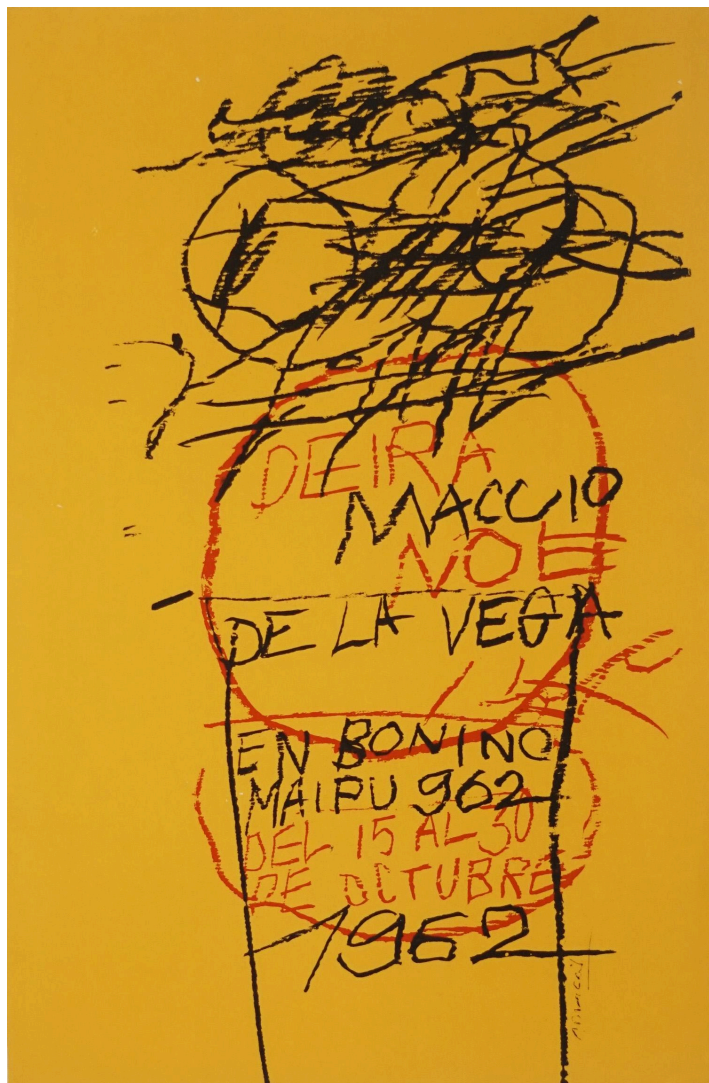 DEIRA
MACCIO
NOE
DE LA VEGA
EN BONINO
MAIPU 962
DEL 15 AL 30
DE OCTUBRE
1962